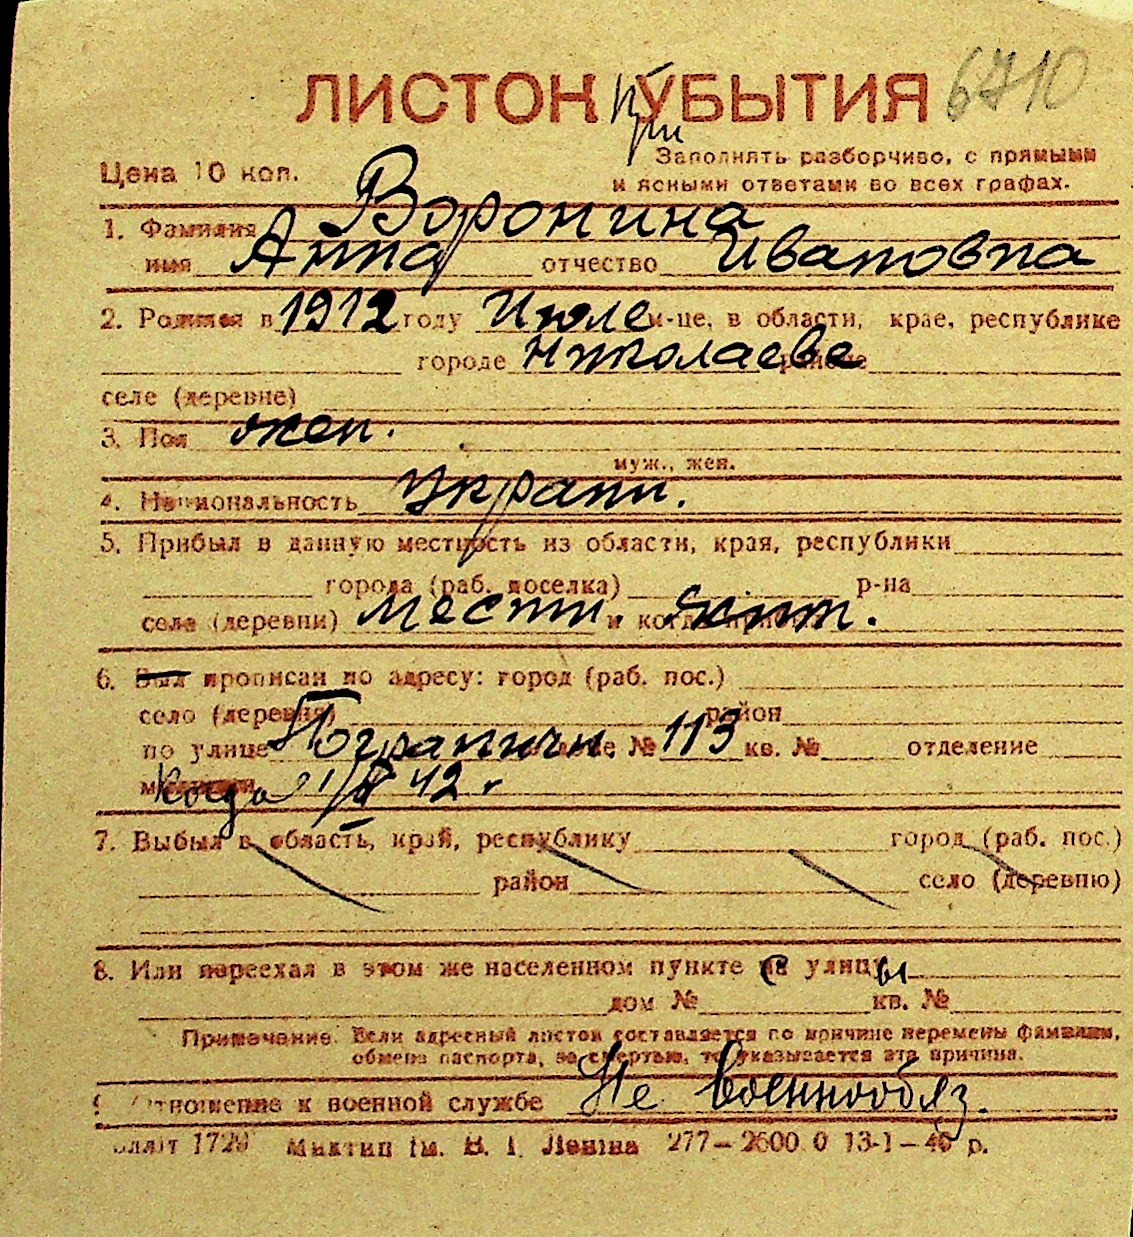 ЛИСТОК при УБЫТИЯ 6710
Цена 10 коп.
Заполнять разборчиво, с прямыми
и ясными ответами во всех графах.
1. Фамилия Воронина
имя Анна отчество Ивановна
2. Родился в 1912 году Июле м-це, в области, крае, республике
городе Николаеве районе
селе (деревне)
3. Пол жен.
муж., жен.
4. Национальность Украин.
5. Прибыл в данную местность из области, края, республики
города (раб. поселка) р-на
села (деревни) местн. и когда жит.
6. Был прописан по адресу: город (раб. пос.)
село (деревня) район
по улице Пограничн. № 113 кв. № отделение
Когда 42 г
7. Выбыл в область, край, республику город (раб. пос.)
район село (деревню)
8. Или переехал в этом же населенном пункте с улицы
дом № кв. №
Примечание. Если адресный листок составляется по причине перемены фамилии,
обмена паспорта, за смертью, то указывается эта причина.
9 Отношение к военной службе Не военнообяз.
1729 Миктип ім. В. І. Леніна 277—2600 0 13-1—40 р.